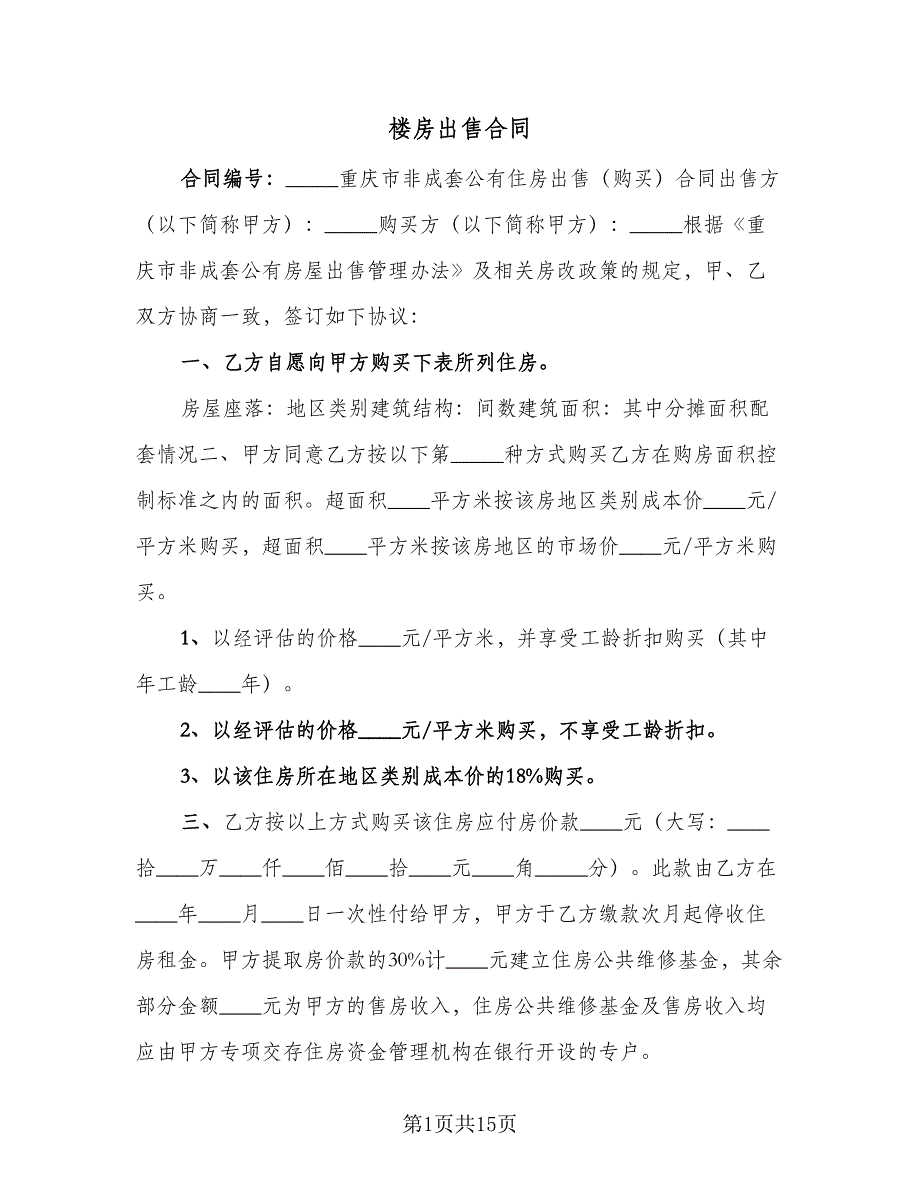 楼房出售合同
合同编号：_____重庆市非成套公有住房出售（购买）合同出售方
（以下简称甲方）：_____购买方（以下简称甲方）：_____根据《重
庆市非成套公有房屋出售管理办法》及相关房改政策的规定，甲、乙
双方协商一致，签订如下协议：
一、乙方自愿向甲方购买下表所列住房。
房屋座落：地区类别建筑结构：间数建筑面积：其中分摊面积配
套情况二、甲方同意乙方按以下第_____种方式购买乙方在购房面积控
制标准之内的面积。超面积____平方米按该房地区类别成本价____元/
平方米购买，超面积____平方米按该房地区的市场价____元/平方米购
买。
1、以经评估的价格____元/平方米，并享受工龄折扣购买（其中
年工龄____年）。
2、以经评估的价格____元/平方米购买，不享受工龄折扣。
3、以该住房所在地区类别成本价的18%购买。
三、乙方按以上方式购买该住房应付房价款____元（大写：____
拾____万____仟____佰____拾____元____角_____分）。此款由乙方在
____年____月____日一次性付给甲方，甲方于乙方缴款次月起停收住
房租金。甲方提取房价款的30%计____元建立住房公共维修基金，其余
部分金额____元为甲方的售房收入，住房公共维修基金及售房收入均
应由甲方专项交存住房资金管理机构在银行开设的专户。
第1页共15页